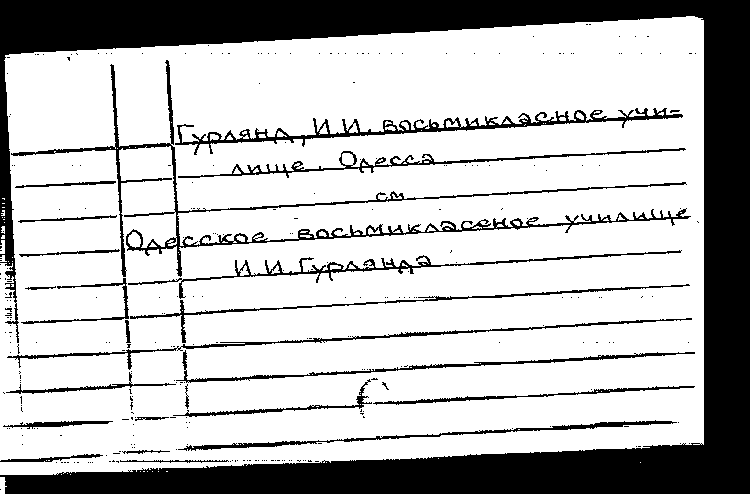 Гурлянд, И.И. восьмикласное учи=
лище. Одесса
см
Одесское восьмикласеное училище
И.И. Гурлянда